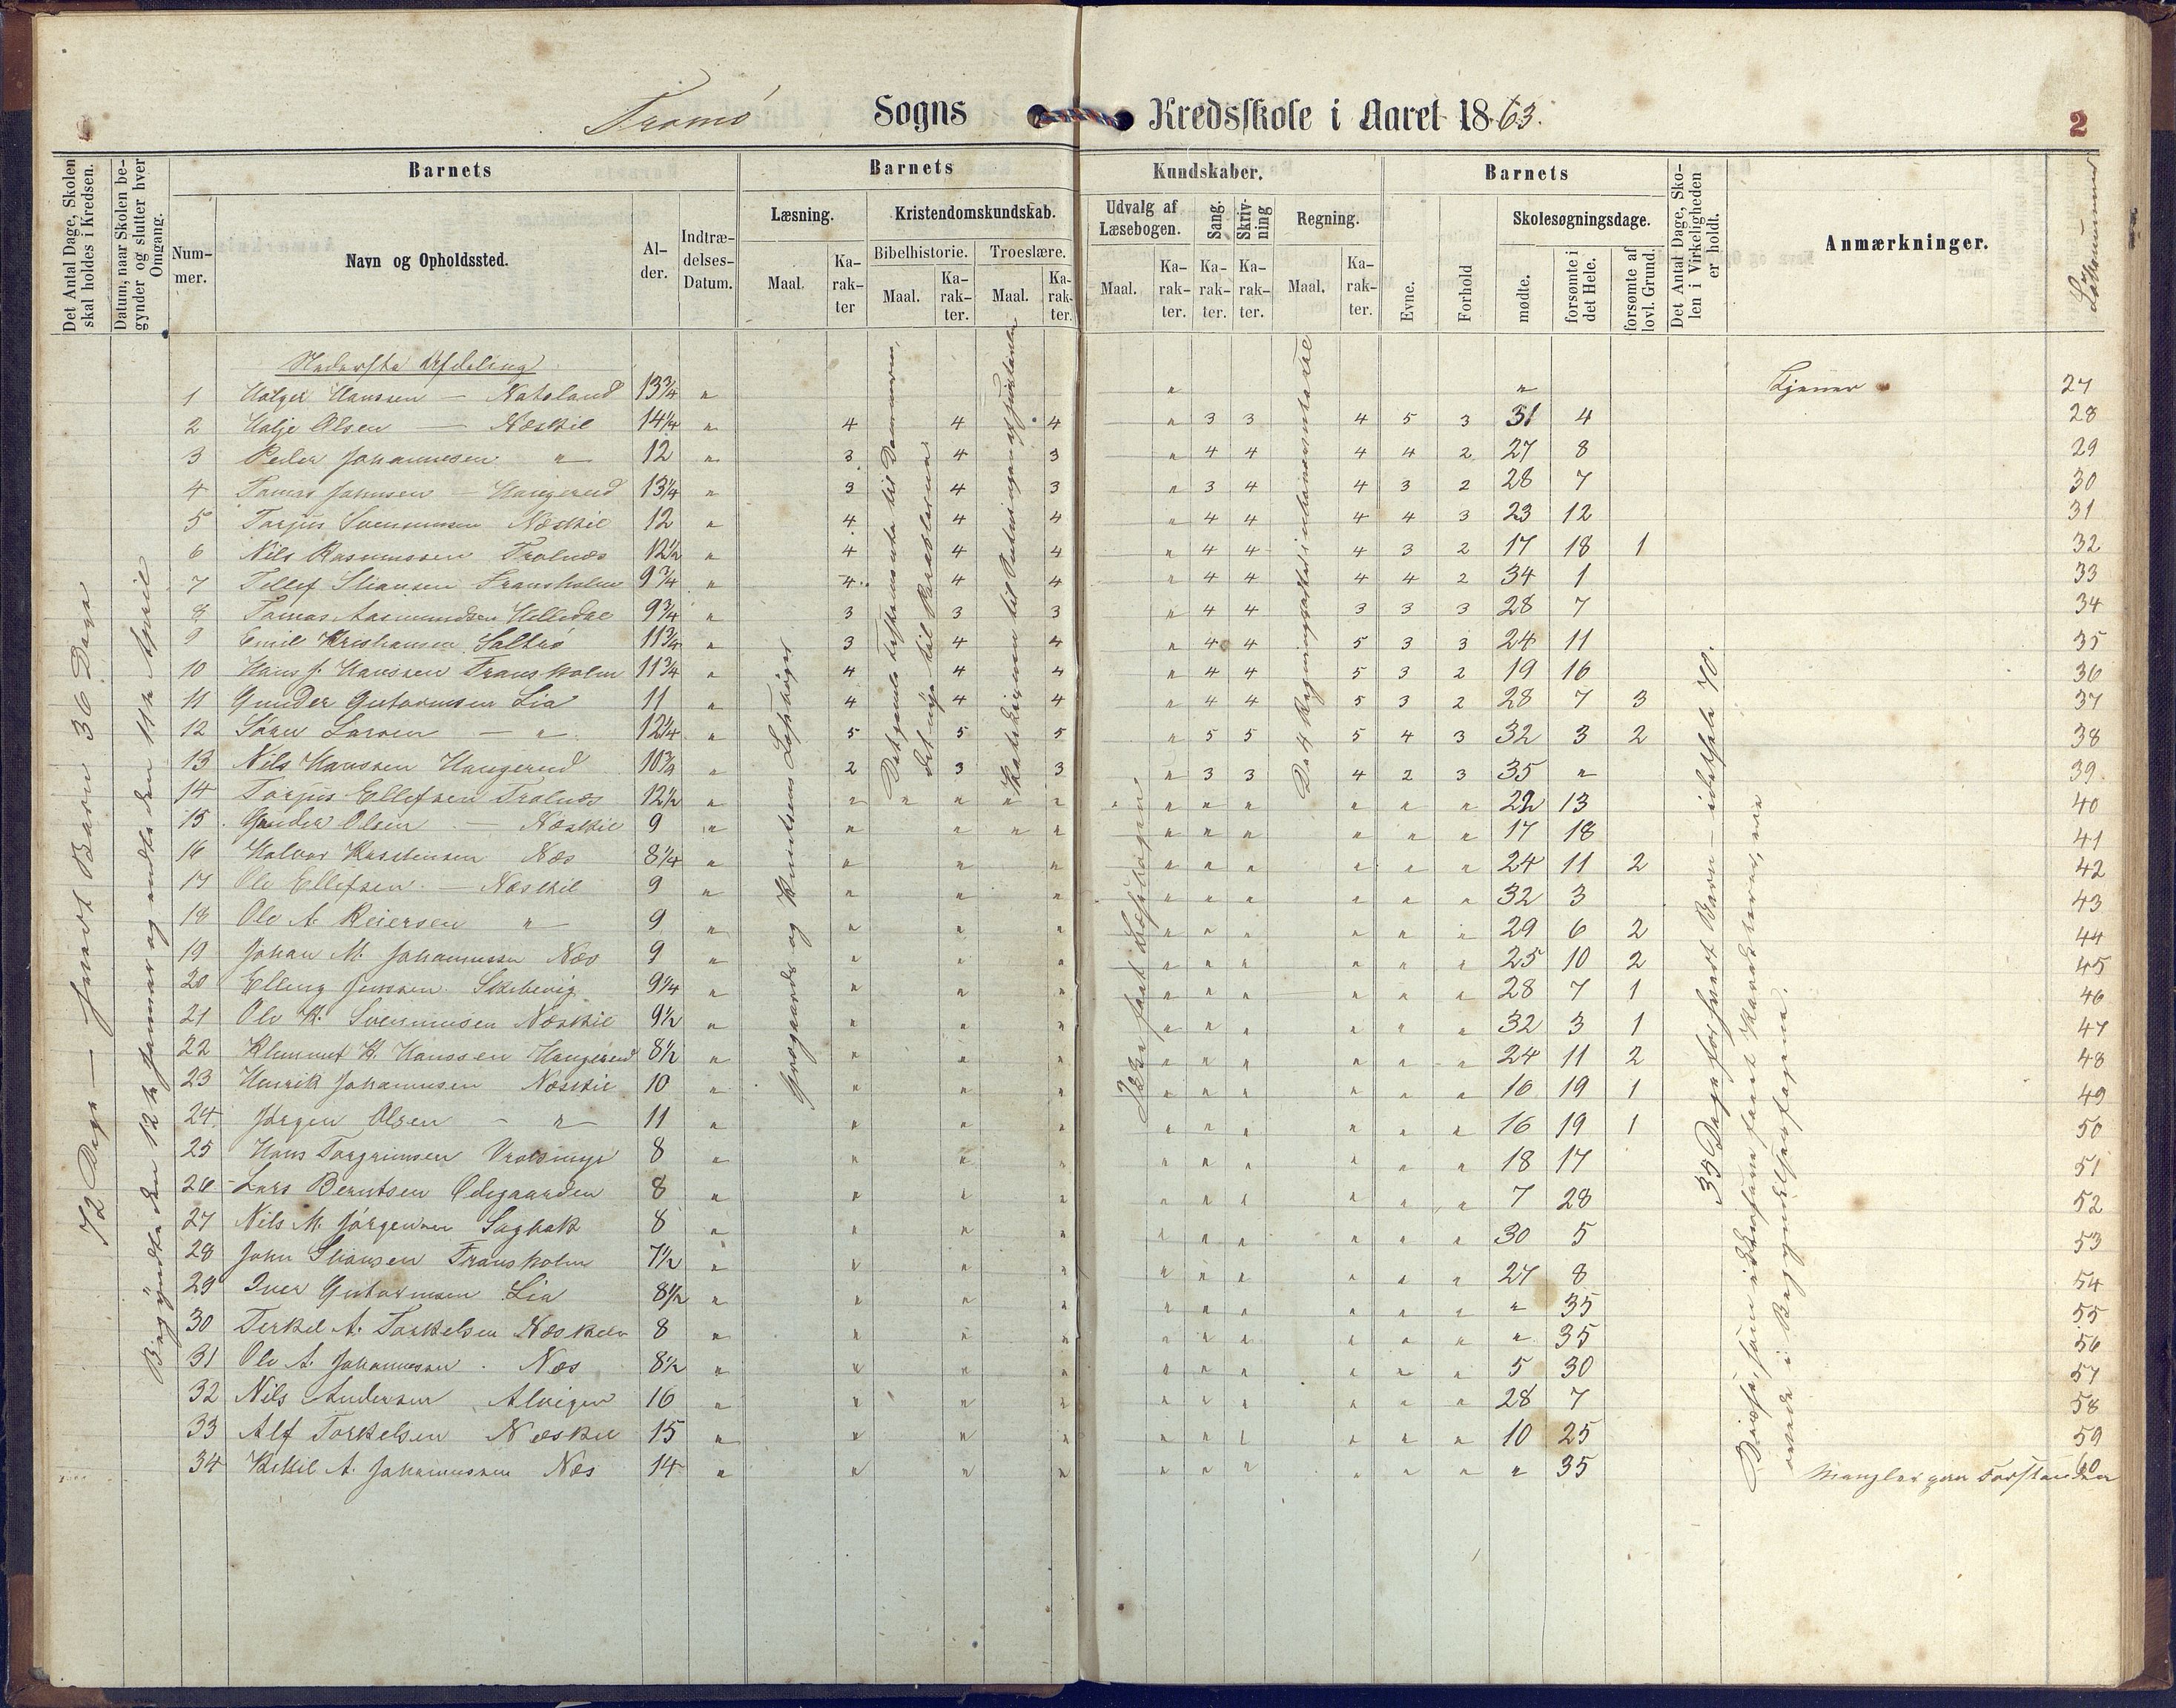 Tromö Sogns Kredsskole i Aaret 1863.
2
Det Antal Dage, Skolen skal holdes i Kredsen.
Datum, naar Skolen begynder og slutter hver Omgang.
Barnets
Nummer.
Navn og Opholdssted.
Alder.
Indtrædelses-Datum.
Barnets Kundskaber.
Læsning.
Maal.
Karakter
Kristendomskundskab.
Bibelhistorie.
Maal.
Karakter.
Troeslære.
Maal.
Karakter.
Udvalg af Læsebogen.
Maal.
Karakter.
Sang.
Karakter.
Skrivning
Karakter.
Regning.
Maal.
Karakter.
Barnets
Evne.
Forhold
Skolesøgningsdage.
mødte.
forsømte i det Hele.
forsømte af lovl. Grund.
Det Antal Dage, Skolen i Virkeligheden er holdt.
Anmærkninger.
Löbenummer
72 Dage — hvert Barn 36 Dage
Begyndte den 12te Januar og endte den 11te April
Nederste Afdeling
1 Holger Hanssen — 13¾ " " " Tjener 27
2 Halje Olsen — Næskil 14¼ " 4 4 4 " 3 3 4 5 3 31 4 28
3 Peder Johannesen " 12 " 3 4 3 " 4 4 4 4 2 27 8 29
4 Tomas Jonnsen — Haugerud 13¼ " 3 4 3 " 3 4 4 3 2 28 7 30
5 Torjus Svenumsen Næskil 12 " 4 4 4 " 4 4 4 4 3 23 12 31
6 Nils Rasmussen Tralnæs 12½ " 4 4 4 " 4 4 4 3 2 17 18 1 32
7 Tellef Stiansen Fransholm 9¾ " 4 4 4 " 4 4 4 4 2 34 1 33
8 Tomas Aasmundsen Helledal 9¾ " 3 3 3 " 4 4 3 3 3 28 7 34
9 Emil Kristiansen Saltrö 11¾ " 3 4 4 " 4 4 5 3 3 24 11 35
10 Hans J. Hanssen Fransholm 11¾ " 4 4 4 " 4 4 5 3 2 19 16 36
11 Gunder Gutormsen Lia 11 " 4 4 4 " 4 4 5 3 2 28 7 3 37
12 Sören Larsen — " 12¼ " 5 5 5 " 5 5 5 4 3 32 3 2 38
13 Nils Hanssen Haugerud 10¾ " 2 3 3 " 3 3 4 2 3 35 " 39
14 Torjus Ellefsen Tralnæs 12½ " " " " " " " " " " " " " " 22 13 40
15 Gunder Olsen — Næskil 9 " " " " " " " " " " " 17 18 41
16 Halvor Kristensen Næs 8¼ " " " " " " " " " " 24 11 2 42
17 Ole Ellefsen — Næskil 9 " " " " " " " " " " 32 3 43
18 Ole A. Reiersen " 9 " " " " " " " " " " 29 6 2 44
19 Johan M. Johannessen Næs 9 " " " " " " " " " " 25 10 2 45
20 Elling Jenssen Skibevig 9¼ " " " " " " " " " " 28 7 1 46
21 Ole K. Svenumsen Næskil 9½ " " " " " " " " " " 32 3 1 47
22 Klemmet H. Hanssen Haugerud 8½ " " " " " " " " " " 24 11 2 48
23 Henrik Johannesen Næskil 10 " " " " " " " " " " 16 19 1 49
24 Jörgen Olsen - " 11 " " " " " " " " " " 16 19 1 50
25 Hans Torgrimsen 8 " " " " " " " " " " 18 17 51
26 Lars Berntsen Ödegaarden 8 " " " " " " " " " " 7 28 52
27 Nils M. Jörgensen Sagbak 8 " " " " " " " " " " 30 5 53
28 John Stiansen Fransholm 7½ " " " " " " " " " " 27 8 54
29 Iver Gutormsen Lia 8½ " " " " " " " " " " " 35 55
30 Terkel A. Torkelsen 8 " " " " " " " " " " " 35 56
31 Ole A. Johannessen Næs 8½ " " " " " " " " " " 5 30 57
32 Nils Andersen Alvigen 16 " " " " " " " " " " 28 7 58
33 Alf Torkelsen Næskil 15 " " " " " " " " " " 10 25 59
34 Kittil A. Johannessen Næs 14 " " " " " " " " " " " 35 Mangler paa Forstanden 60
og Knutsens Læsebøger
Det gamle Testamente til Dommerne, det nye til Parablerne
Ikke faat Læsebogen
De 4 Regningsarter
35 Dage for hvert Barn — idethele 70.
Disse, som ikke have faaet Karakterer, ere